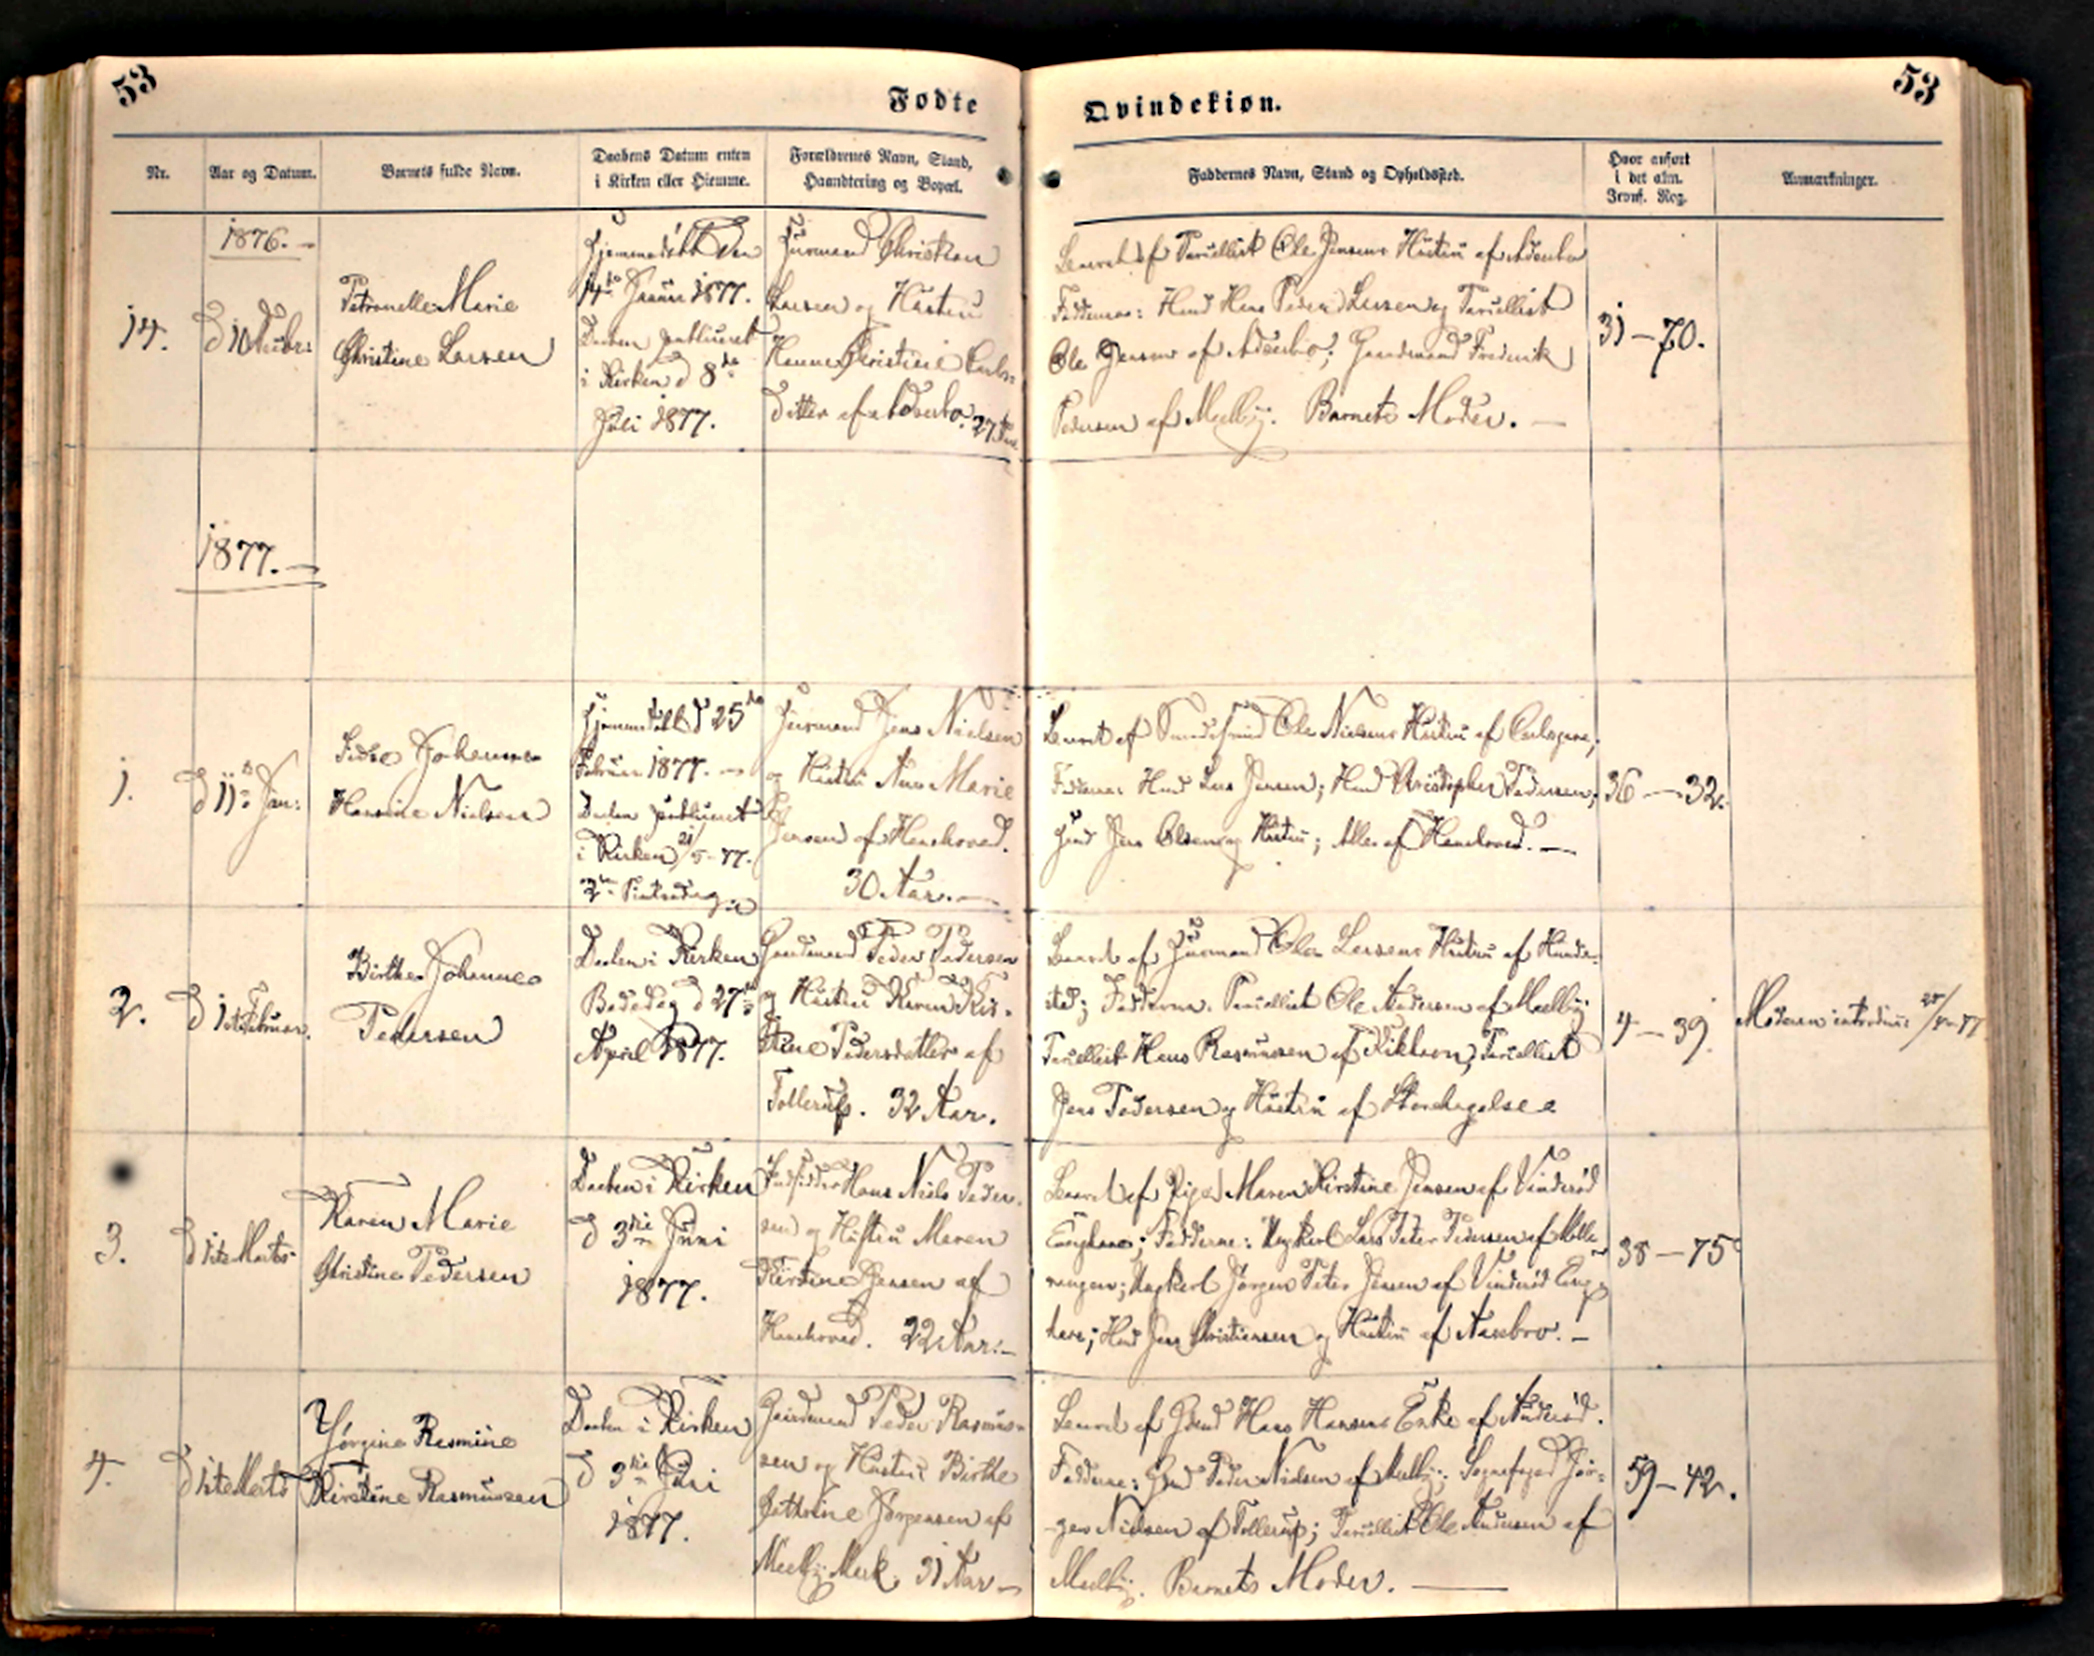 53
53
Fødte
Qvindekiøn.
Nr.
Aar og Datum.
Barnets fulde Navn.
Daabens Datum enten
i Kirken eller Hiemme.
Forældrenes Navn, Stand,
Haandtering og Bopæl.
Faddernes Navn, Stand og Opholdssted.
Hvor anført
i det alm.
Jevnf. Reg.
Anmærkninger.
1876. -
14.
Petronelle Marie
Christine Larsen
Hjemmedøbt den
14de Januar 1877.
Daaben publiceret
i Kirken d 8de
Juli 1877.
Huusmand Christian
Larsen og Hustru
Hanne Christine
Datter af
Baaret af Parcellist Ole Jensens Hustru af
Fadderne: Hmd Hans Peder Larsen og Parcellist
Ole Jensen af Gaardmand Frederik
Pedersen af Melby. Barnets Moder. —
31 - 70.
1877. —
1.
d 11te Jan:
Johanne
Hansine Nielsen
Hjemmedøbt d 25de
Februar 1877. —
Daaben publiceret
i Kirken 21/5 - 77.
2den Pintsedag
Huusmand Jens Nielsen
og Hustru Ane Marie
Jensen af Hanehoved.
30 Aar. —
Baaret af Ole Nielsens Hustru af
Fadderne: Hmd Lars Jensen; Hmd Christopher Pedersen;
Hmd Jens Olsen og Hustru; Alle af Hanehoved. —
36 - 32.
2.
d 1ste Februar.
Birthe Johanne
Pedersen
Daaben i Kirken
Bededag d 27de
April 1877.
Gaardmand Peder Pedersen
og Hustru Karen Kir-
stine Pedersdatter af
Tollerup. 32 Aar.
Baaret af Huusmand Ole Larsens Hustru af Hunde-
sted; Fadderne: Parcellist Ole Andersen af Melby
Parcellist Hans Rasmussen af Kikhavn, Parcellist
Jens Pedersen og Hustru af
4 - 39.
Moderen introduc:
3.
d 1ste Marts
Karen Marie
Christine Pedersen
Daaben i Kirken
d 3die Juni
1877.
Indsidder Hans Niels Peder-
sen og Hustru Maren
Kirstine Jensen af
Hanehoved. 22 Aar. —
Baaret af Pige Maren Kirstine Jensen af Vinderød
Enghave; Fadderne: Ungkarl Lars Peter Pedersen af Melle-
rengen; Ungkarl Jørgen Peter Jensen af Vinderød Eng-
have; Hmd Jens Christiansen og Hustru af —
38 - 75
4.
d 1ste Marts
Jørgine Rasmine
Kirstine Rasmussen
Daaben i Kirken
d 3die
1877.
Gaardmand Peder Rasmus-
sen og Hustru Birthe
Cathrine Jørgensen af
Melby Mark. 31 Aar —
Baaret af Gmd Hans Hansens Enke af
Fadderne: Gmd Peder Nielsen af Melby; Sognefoged Jør-
gen Nielsen af Tollerup; Parcellist Ole Andersen af
Melby. Barnets Moder. —
59 - 42.